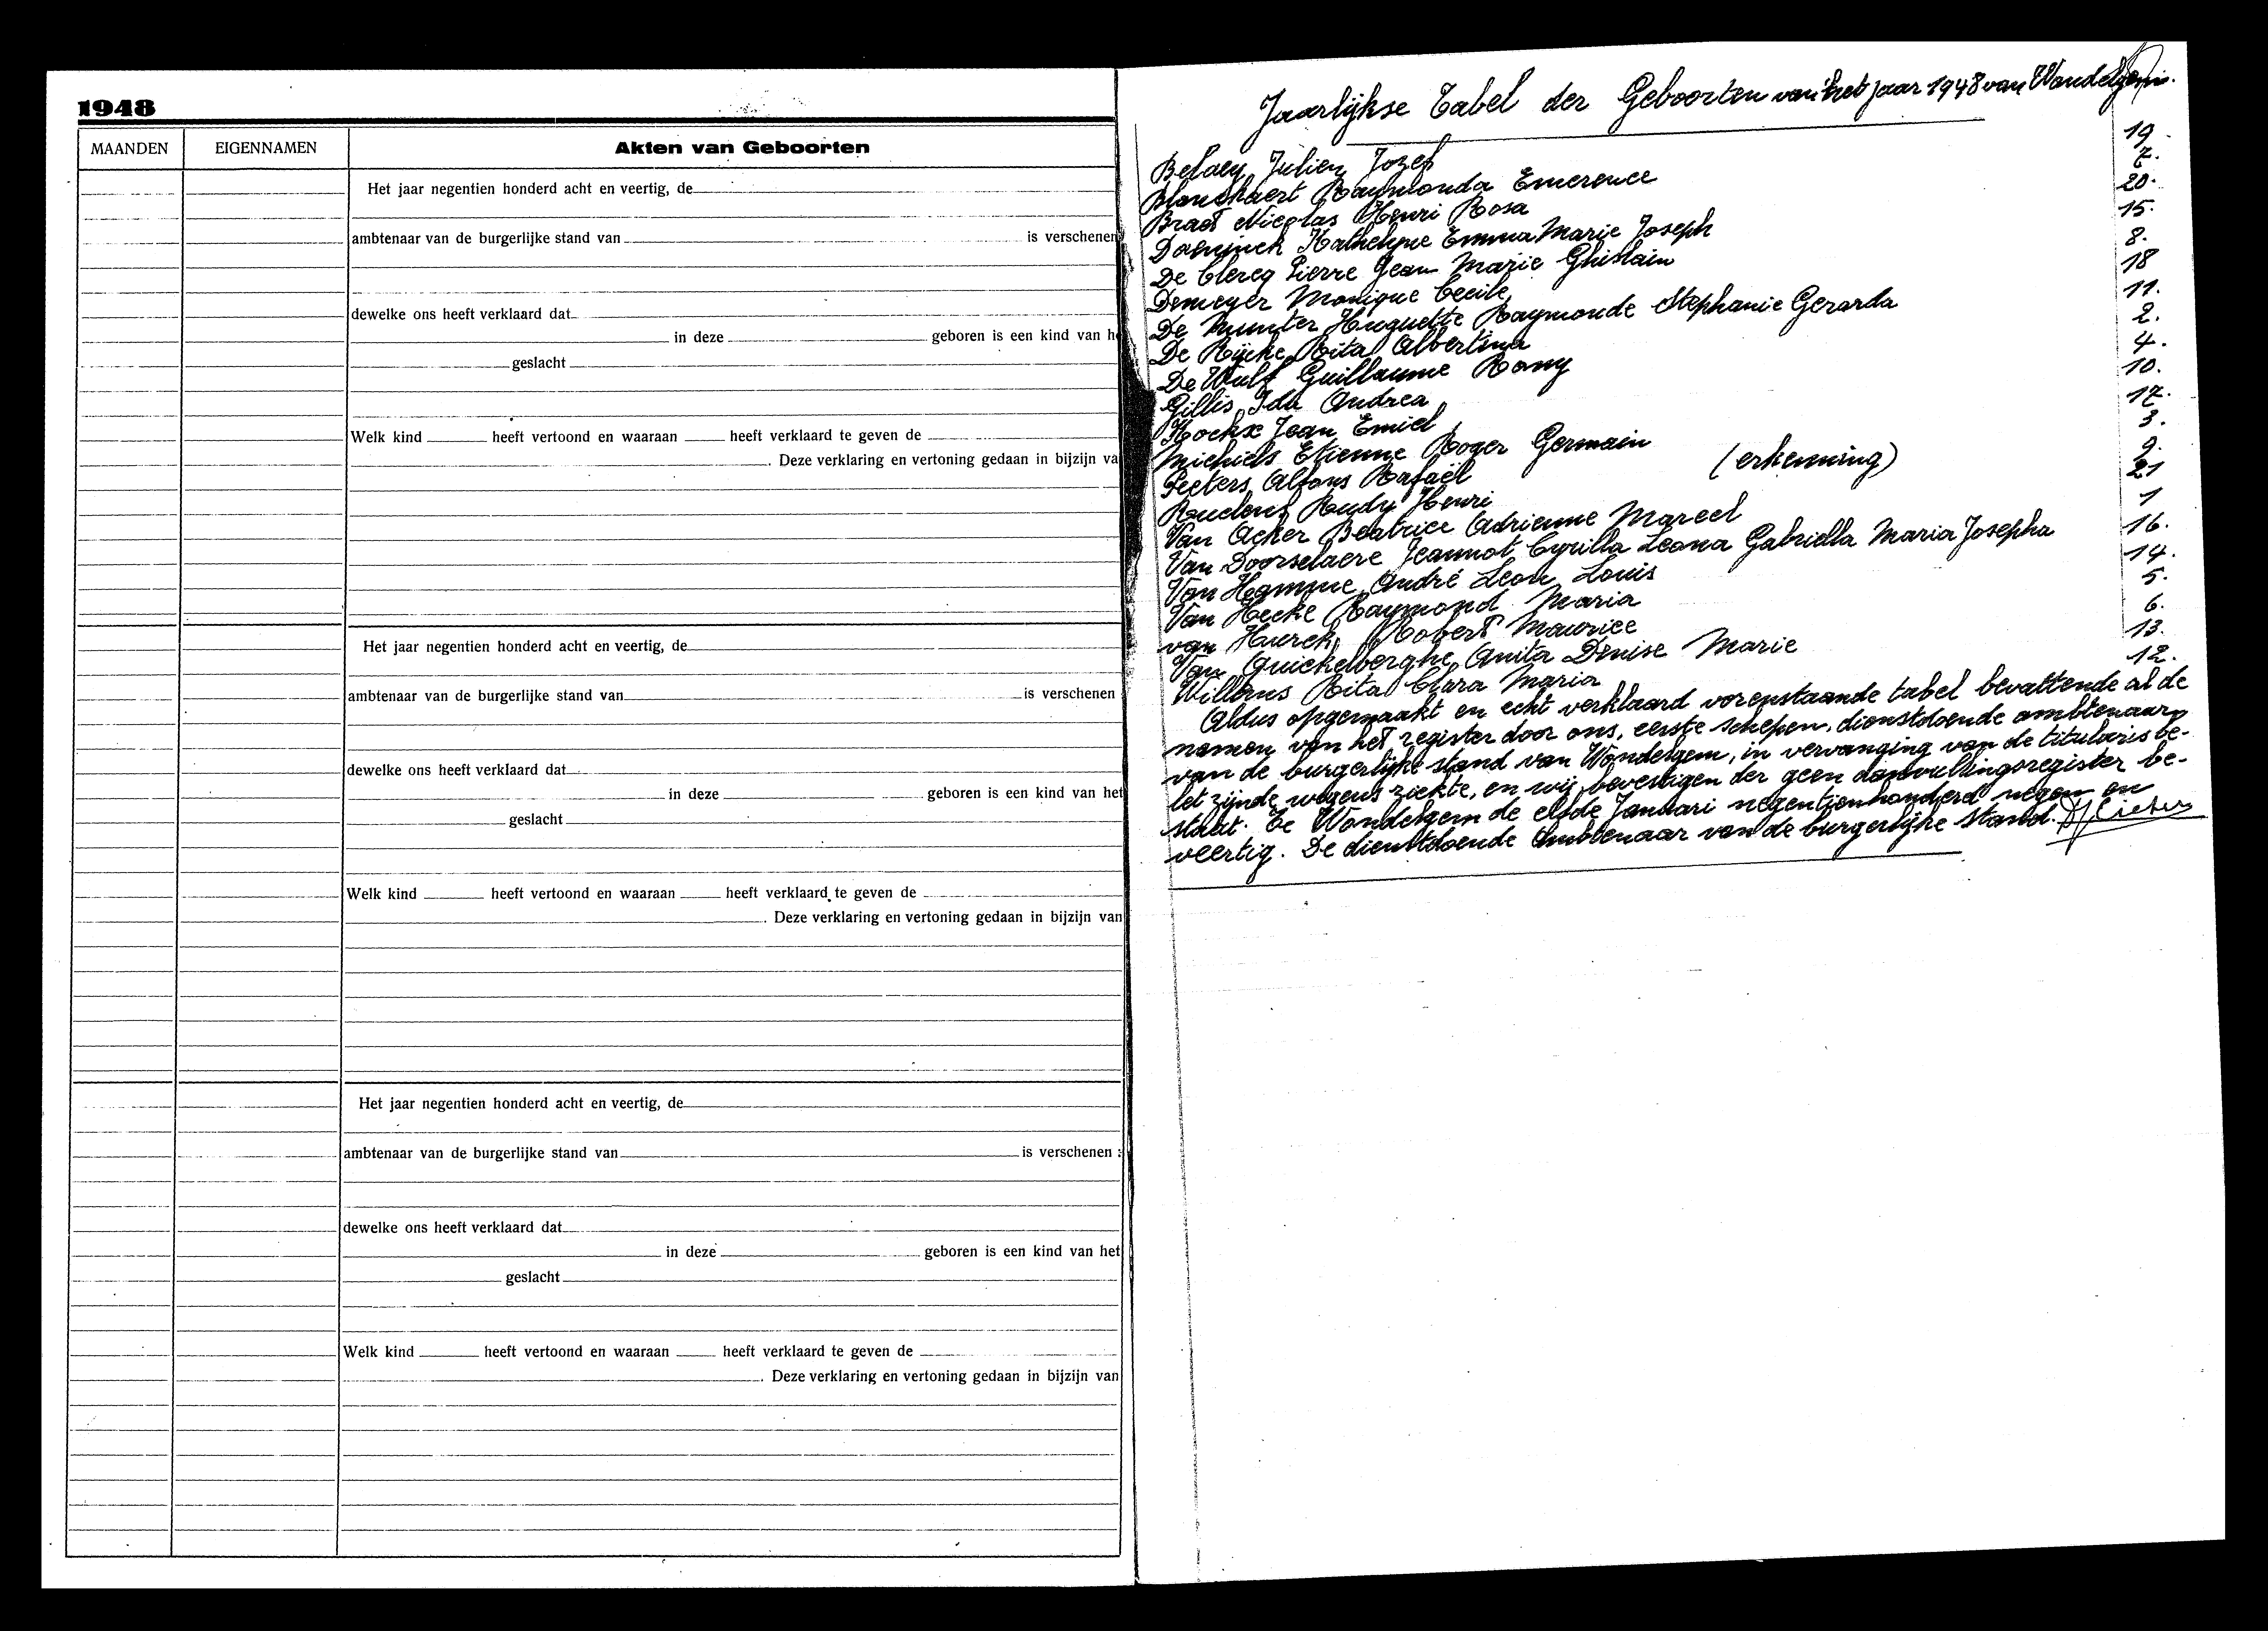 1948
MAANDEN EIGENNAMEN Akten van Geboorten
Het jaar negentien honderd acht en veertig, de
ambtenaar van de burgerlijke stand van is verschenen
dewelke ons heeft verklaard dat
in deze geboren is een kind van h
geslacht
Welk kind heeft vertoond en waaraan heeft verklaard te geven de
. Deze verklaring en vertoning gedaan in bijzijn va
Het jaar negentien honderd acht en veertig, de
ambtenaar van de burgerlijke stand van is verschenen
dewelke ons heeft verklaard dat
in deze geboren is een kind van het
geslacht
Welk kind heeft vertoond en waaraan heeft verklaard te geven de
. Deze verklaring en vertoning gedaan in bijzijn van
Het jaar negentien honderd acht en veertig, de
ambtenaar van de burgerlijke stand van is verschenen :
dewelke ons heeft verklaard dat
in deze geboren is een kind van het
geslacht
Welk kind heeft vertoond en waaraan heeft verklaard te geven de
. Deze verklaring en vertoning gedaan in bijzijn van
Jaarlijkse Tabel der Geboorten van het jaar 1948 van Wondelgem.
Belaey Julien Jozef 19.
Blanckaert Raymonda Emerence 7.
Braet Nicolas Henri Rosa 20.
Daeninck Kathelyne Emma Marie Joseph 15.
De Clercq Pierre Jean Marie Ghislain 8.
Demeyer Monique Cecile 18
De Munter Huguette Raymonde Stephanie Gerarda 11.
De Rijcke Rita Albertina 2.
De Wulf Guillaume Romy 4.
Gillis Ida Andrea 10.
Hockx Jean Emiel 17.
Michiels Etienne Roger Germain 3.
Peeters Alfons Rafaël (erkenning) 9.
Ruelens Rudy Henri 21
Van Acker Beatrice Adrienne Marcel 1
Van Doorselaere Jeannot Cyrilla Leona Gabriella Maria Josepha 16.
Van Hamme André Leon Louis 14.
Van Hecke Raymond Maria 5.
van Hurck Robert Maurice 6.
Van Quickelberghe Anita Denise Marie 13.
Willems Rita Clara Maria 12.
Aldus opgemaakt en echt verklaard vorenstaande tabel bevattende al de
namen van het register door ons, eerste schepen, dienstdoende ambtenaar
van de burgerlijke stand van Wondelgem, in vervanging van de titularis be-
let zijnde wegens ziekte, en wij bevestigen der geen aanvullingsregister be-
staat. Te Wondelgem de elfde Januari negentienhonderd negen en
veertig. De dienstdoende Ambtenaar van de burgerlijke stand.